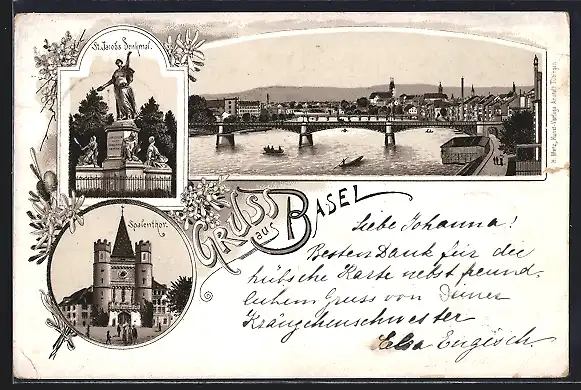 St. Jacobs Denkmal.
Spalenthor.
GRUSS
aus
BASEL
H. Metz, Kunst-Verlags-Anstalt Tübingen
Liebe Johanna!
Besten Dank für die
hübsche Karte nebst freund-
lichem Gruss von Deiner
Kränzchenschwester
Elsa Engisch